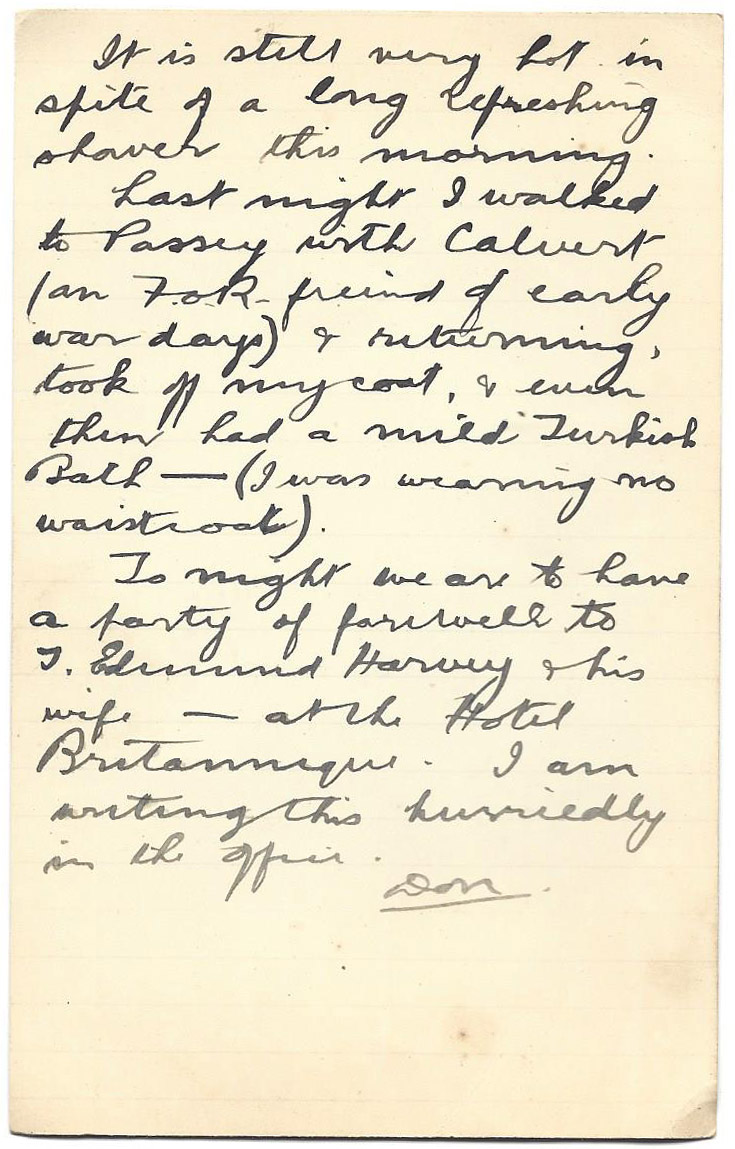 It is still very hot in
spite of a long refreshing
shower this morning.
Last night I walked
to Passey with Calvert
(an F.o.R. freind of early
war days) & returning,
took off my coat, & even
then had a mild Turkish
Bath — (I was wearing no
waistcoat).
To night we are to have
a party of farewell to
T. Edmund Harvey & his
wife — at the Hotel
Britannique. I am
writing this hurriedly
in the office.
Don.